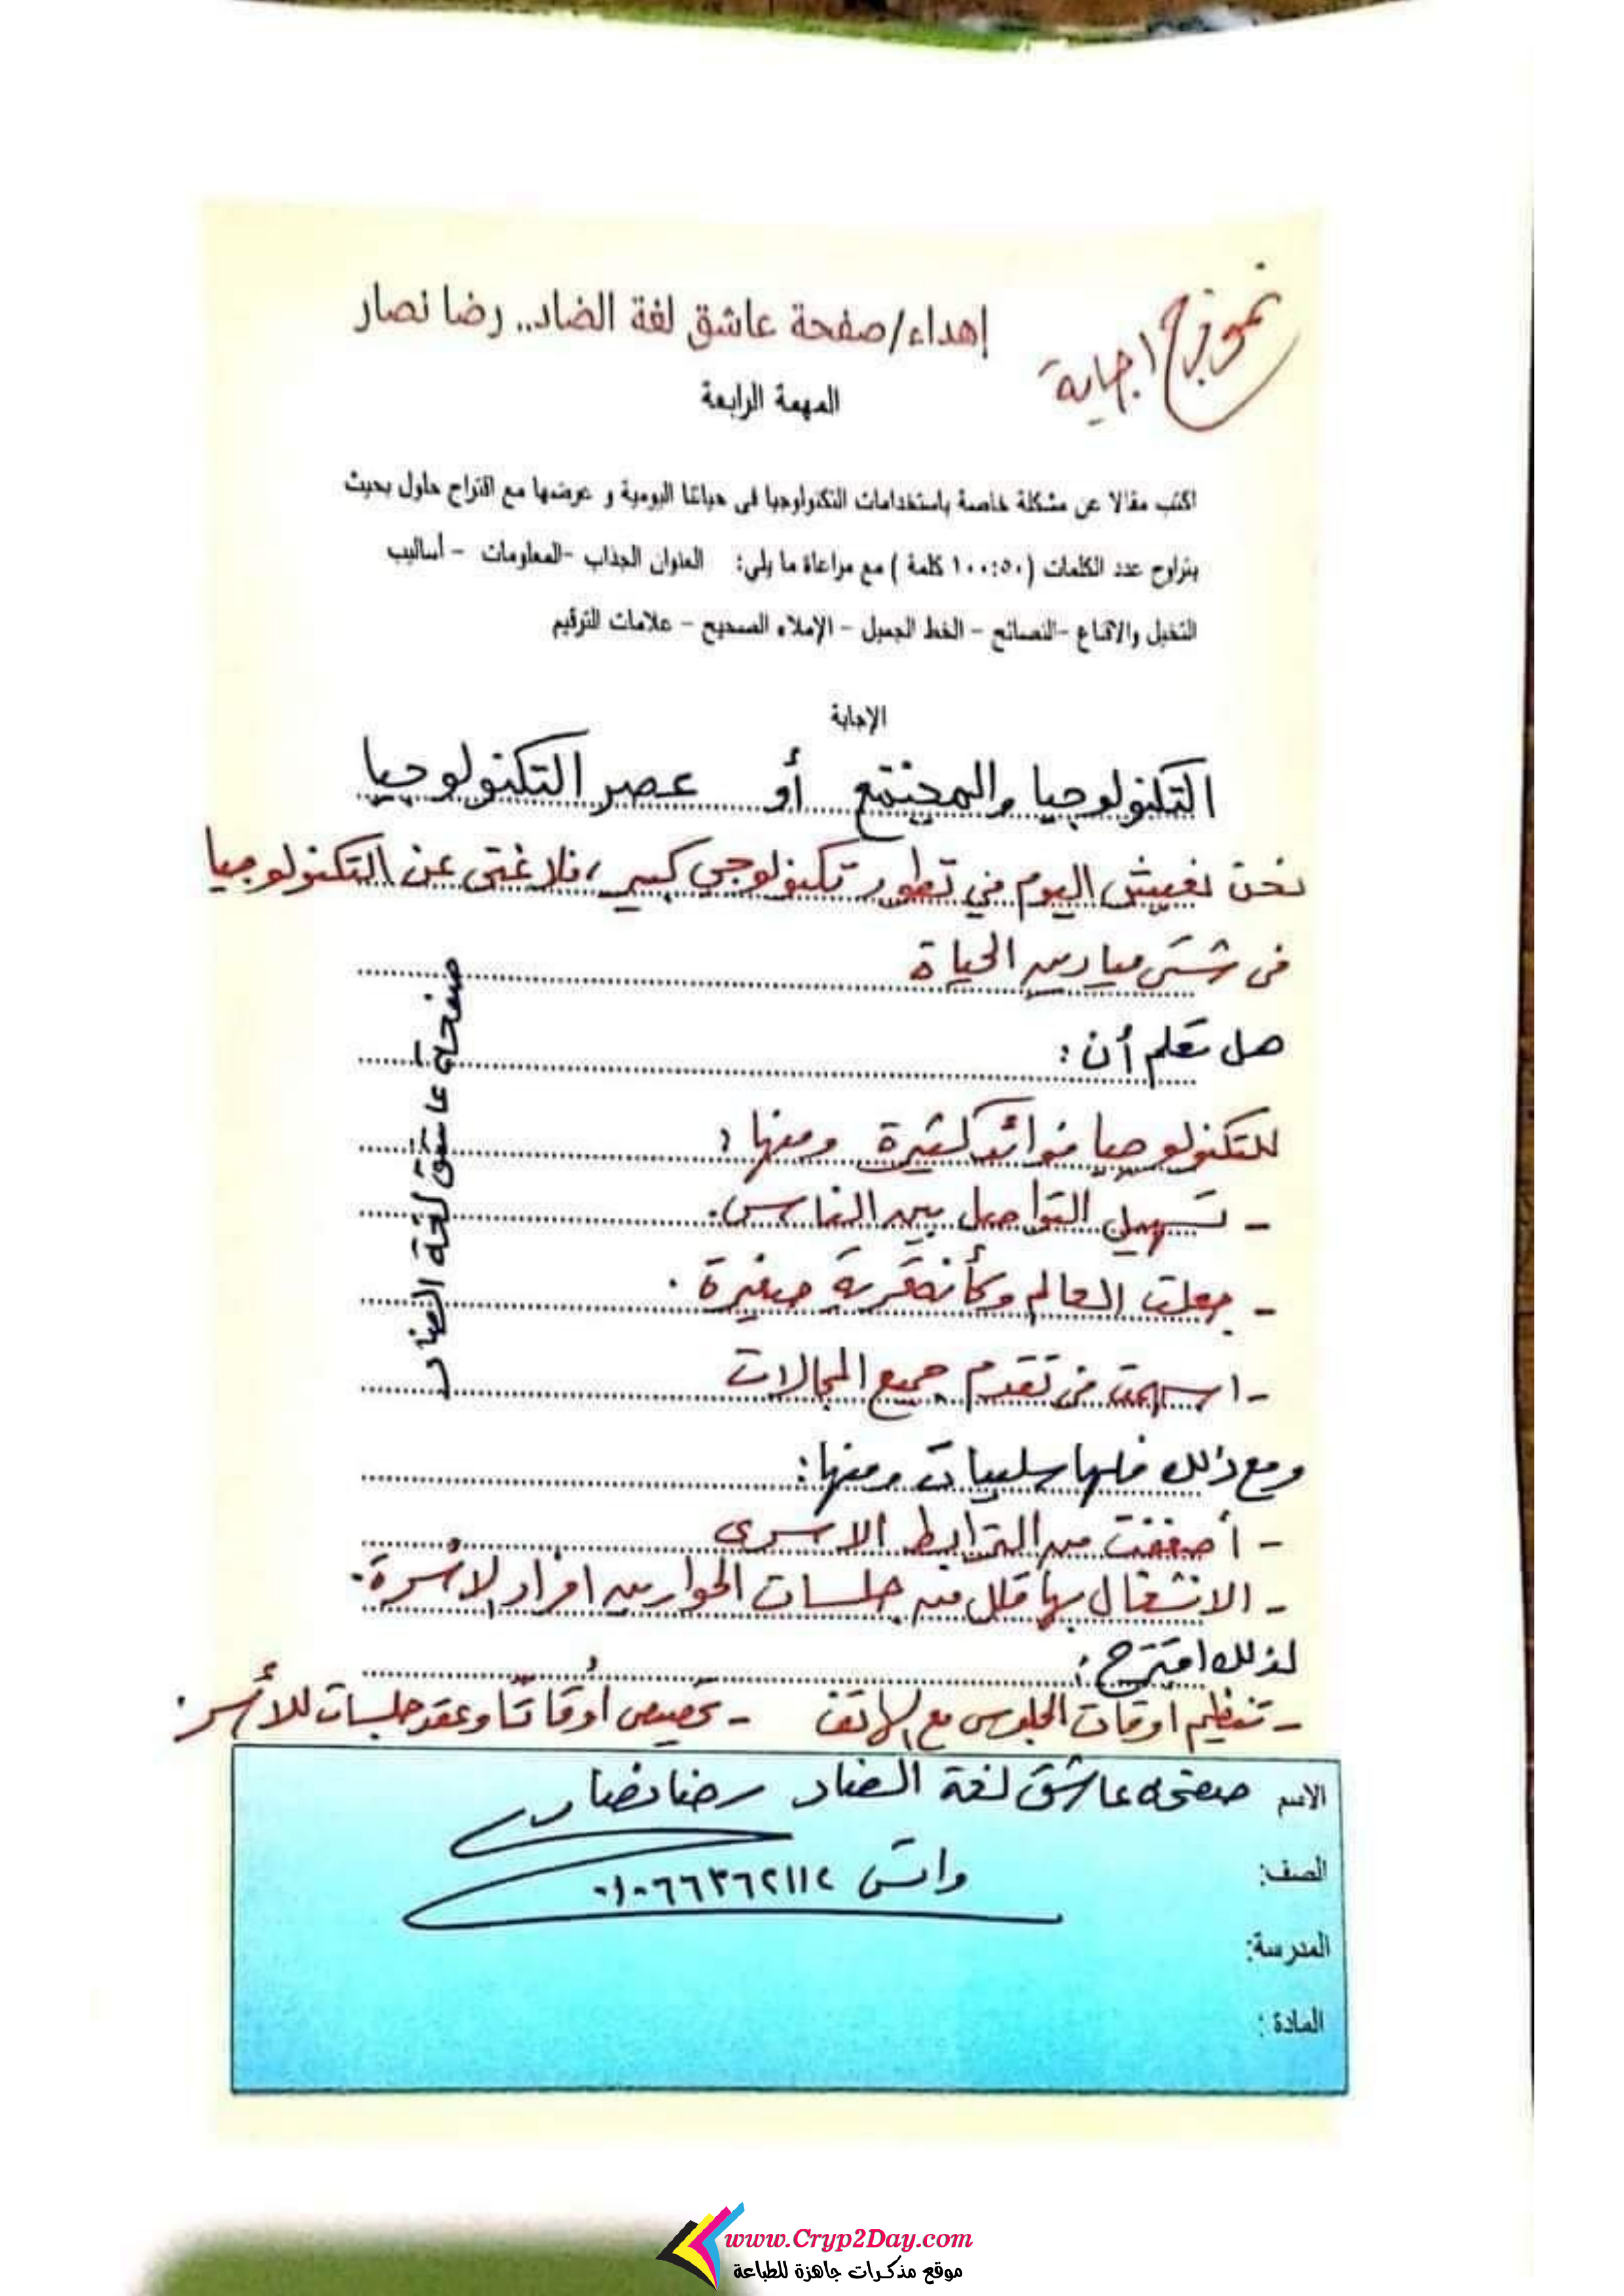 نموذج اجابة
إهداء/صفحة عاشق لغة الضاد.. رضا نصار
المهمة الرابعة
اكتب مقالا عن مشكلة خاصة باستخدامات التكنولوجيا فى حياتنا اليومية و عرضها مع اقتراح حلول بحيث
يتراوح عدد الكلمات (١٠٠:٥٠ كلمة ) مع مراعاة ما يلى: العنوان الجذاب -المعلومات - أساليب
التخيل والاقناع -النصائح - الخط الجميل - الإملاء الصحيح - علامات الترقيم
الإجابة
التكنولوجيا والمجتمع أو عصر التكنولوجيا
نحن نعيش اليوم في تطور تكنولوجي كبير، فلا غنى عن التكنولوجيا
فى شتى ميادين الحياة
هل تعلم أن:
للتكنولوجيا فوائد كثيرة ومنها:
- تسهيل التواصل بين الناس.
- جعلت العالم وكأنه قرية صغيرة.
- اسهمت فى تقدم جميع المجالات
ومع ذلك فلها سلبيات ومنها:
- أضعفت من الترابط الاسرى
- الانشغال بها قلل من جلسات الحوار بين افراد الأسرة.
لذلك اقترح:
- تنظيم اوقات الجلوس مع الهاتف - تخصيص أوقاتًا وعقد جلسات للأسر.
صفحة عاشق لغة الضاد
الاسم صفحه عاشق لغة الضاد رضا نصار
الصف:
واتس ٠١٠٦٦٣٦٢١١٢
المدرسة:
المادة :
www.Cryp2Day.com
موقع مذكرات جاهزة للطباعة